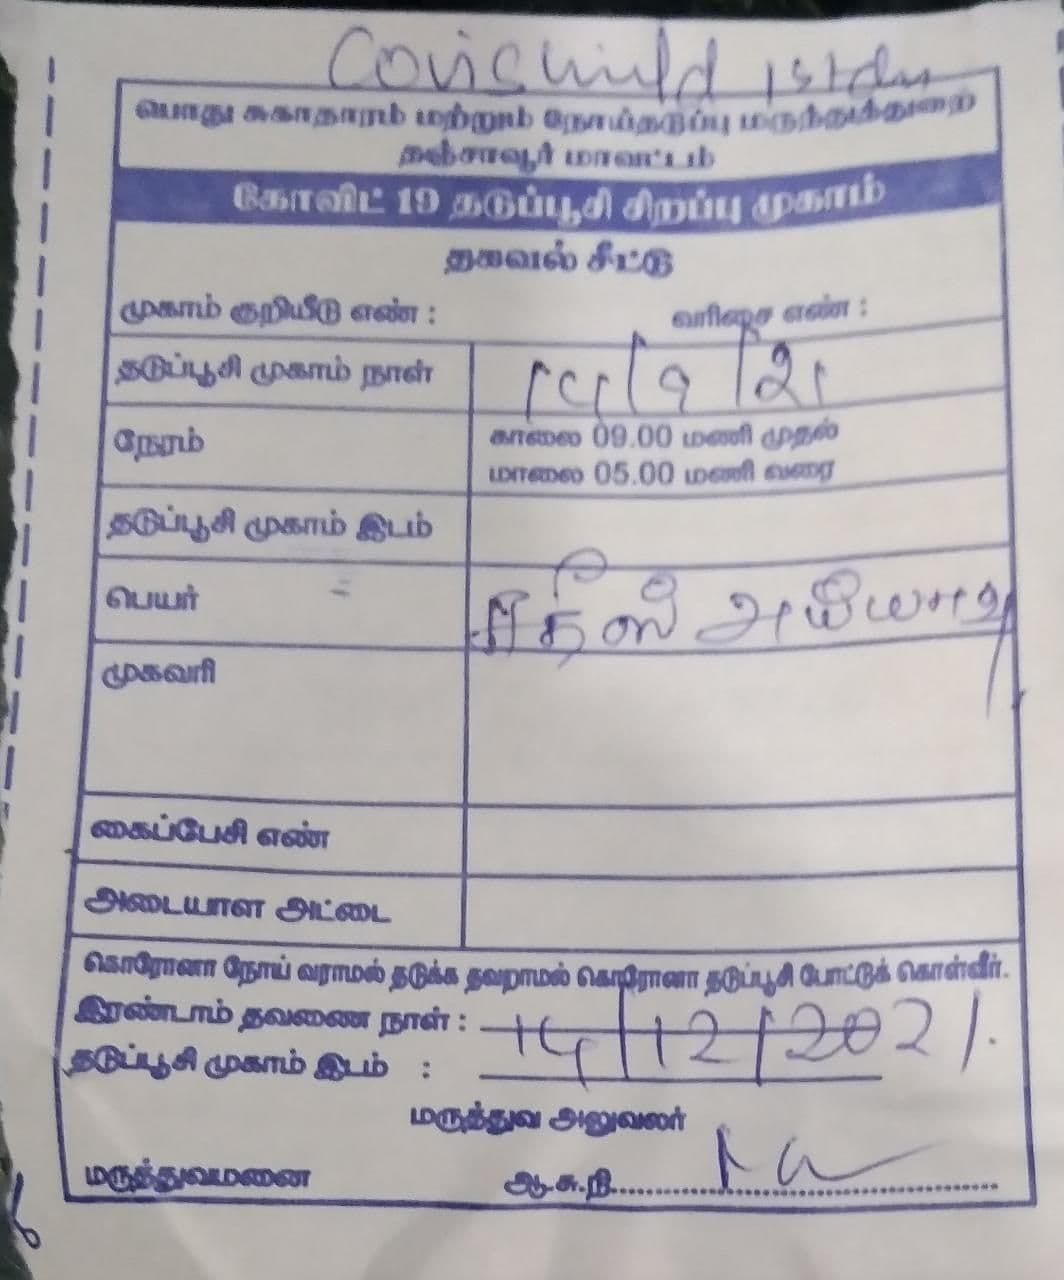 Covishild 1st dos
பொது சுகாதாரம் மற்றும் நோய்தடுப்பு மருந்துத்துறை
தஞ்சாவூர் மாவட்டம்
கோவிட் 19 தடுப்பூசி சிறப்பு முகாம்
தகவல் சீட்டு
முகாம் குறியீடு எண் : வரிசை எண் :
தடுப்பூசி முகாம் நாள் 14/9/21
நேரம் காலை 09.00 மணி முதல்
மாலை 05.00 மணி வரை
தடுப்பூசி முகாம் இடம்
பெயர்
முகவரி
கைப்பேசி எண்
அடையாள அட்டை
கொரோனா நோய் வராமல் தடுக்க தவறாமல் கொரோனா தடுப்பூசி போட்டுக் கொள்வீர்.
இரண்டாம் தவணை நாள் : 14/12/2021.
தடுப்பூசி முகாம் இடம் :
மருத்துவ அலுவலர்
மருத்துவமனை ஆ.சு.நி..........